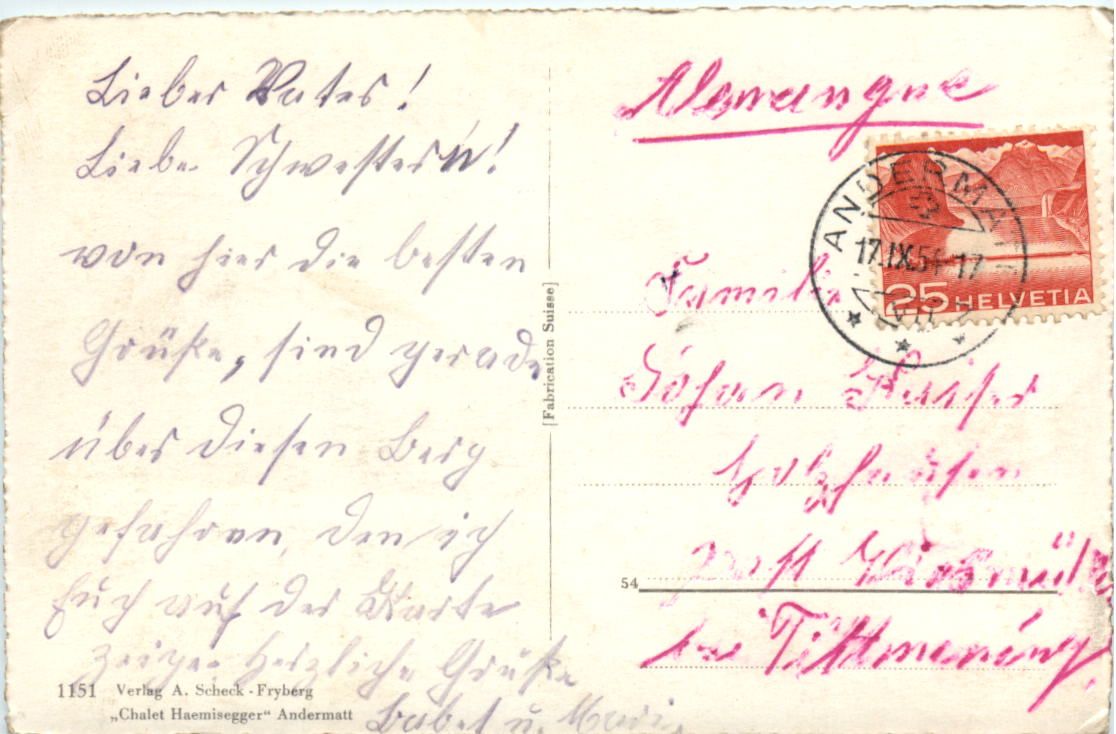 Lieber Vater!
Liebe Schwestern!
von hier die besten
Grüße, sind gerade
über diesen Berg
gefahren, den ich
Euch auf der Karte
zeige. Herzliche Grüße
Babet u. Mari.
1151 Verlag A. Scheck - Fryberg
„Chalet Haemisegger“ Andermatt
[Fabrication Suisse]
Alemangne
ANDERMATT
17.IX.51-17
25 HELVETIA
Familie
Johan Kaiser
Holzhausen
54
Post
bei Tittmoning